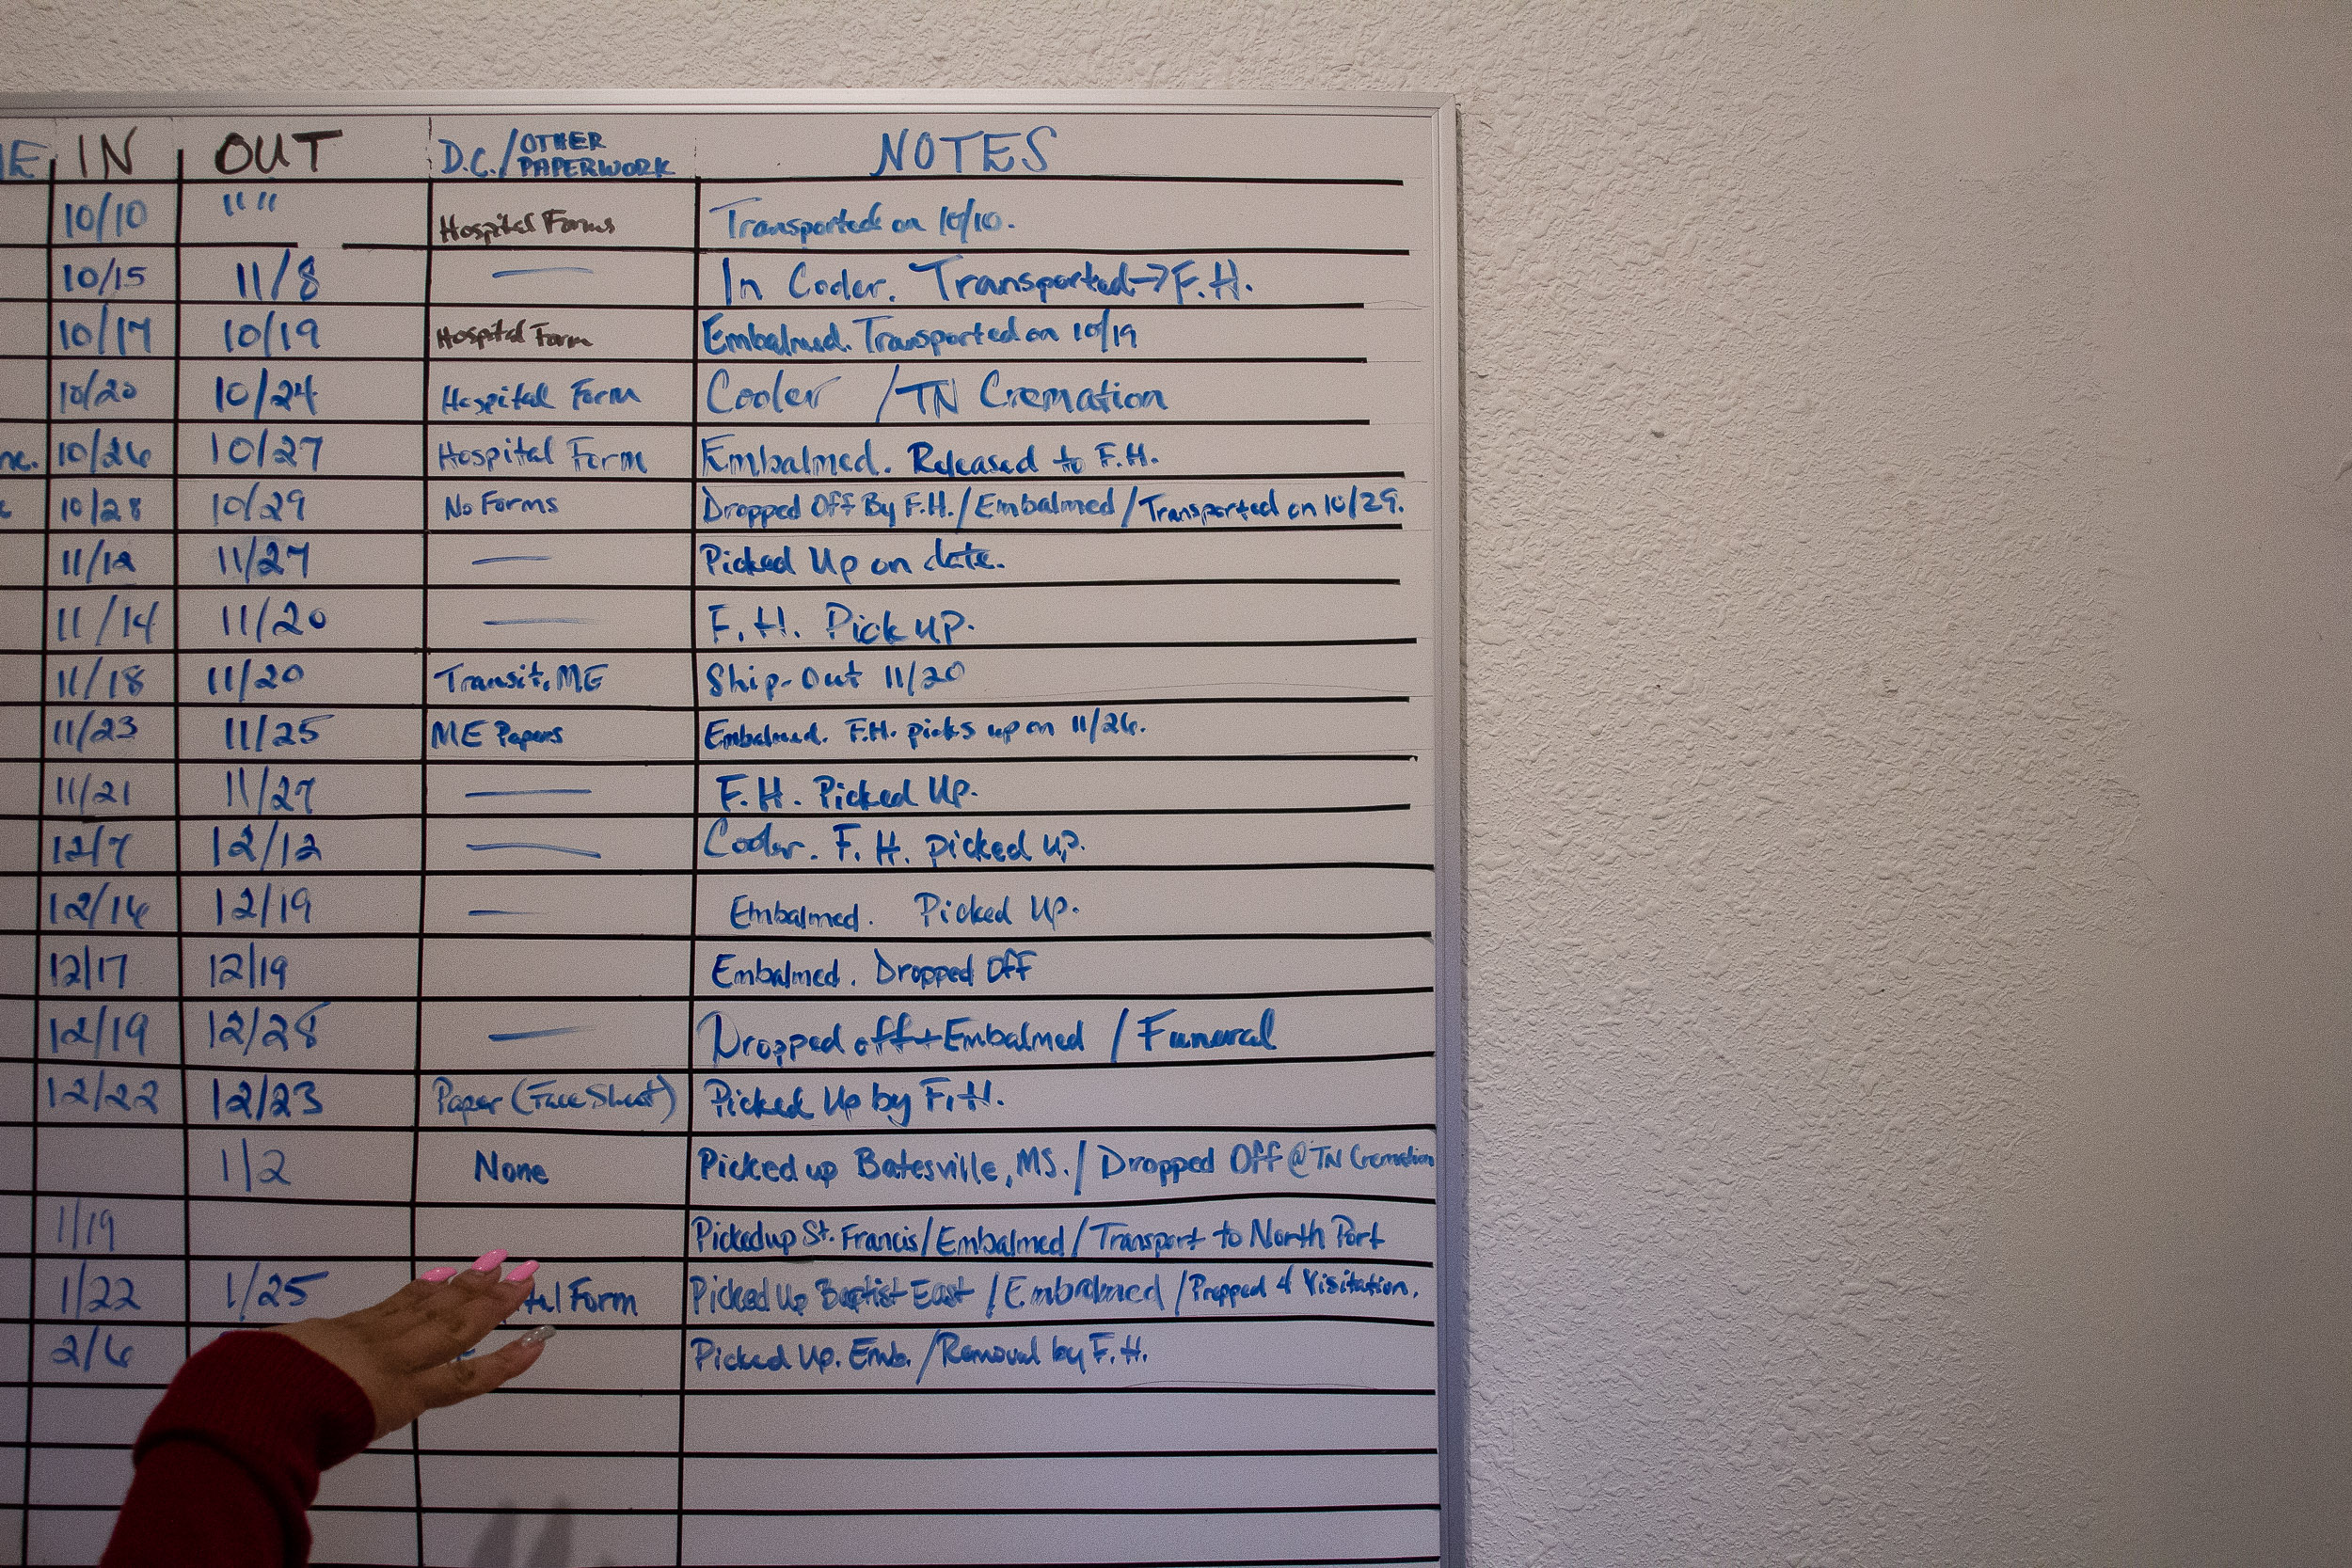 IN OUT D.C./OTHER PAPERWORK NOTES
10/10 " " Hospital Forms Transported on 10/10.
10/15 11/8 — In Cooler. Transported→F.H.
10/17 10/19 Hospital Form Embalmed. Transported on 10/19
10/20 10/24 Hospital Form Cooler /TN Cremation
10/26 10/27 Hospital Form Embalmed. Released to F.H.
10/28 10/29 No Forms Dropped Off By F.H./Embalmed/Transported on 10/29.
11/12 11/27 — Picked Up on date.
11/14 11/20 — F.H. Pick up.
11/18 11/20 Transit, ME Ship-Out 11/20
11/23 11/25 ME Papers Embalmed. F.H. picks up on 11/26.
11/21 11/27 — F.H. Picked Up.
12/7 12/12 — Cooler. F.H. picked up.
12/16 12/19 — Embalmed. Picked Up.
12/17 12/19 Embalmed. Dropped Off
12/19 12/28 — Dropped off+Embalmed / Funeral
12/22 12/23 Paper (Face Sheet) Picked Up by F.H.
1/2 None Picked up Batesville, MS./ Dropped Off @ TN Cremation
1/19 Picked up St. Francis/Embalmed/Transport to North Port
1/22 1/25 Form Picked Up Baptist East /Embalmed /Prepped 4 Visitation.
2/6 Picked Up. Emb./Removal by F.H.